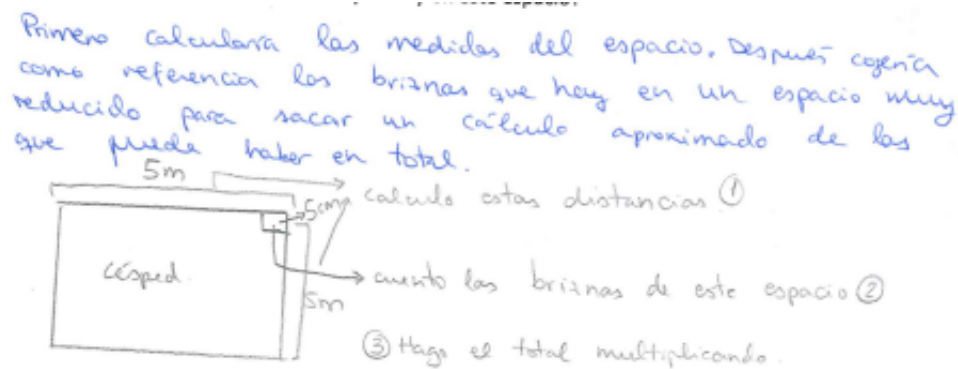 Primero calcularía las medidas del espacio. Después cogería
como referencia las briznas que hay en un espacio muy
reducido para sacar un cálculo aproximado de las
que puede haber en total.
5m
5cm
calculo estas distancias ①
césped
cuento las briznas de este espacio ②
5m
③ Hago el total multiplicando.